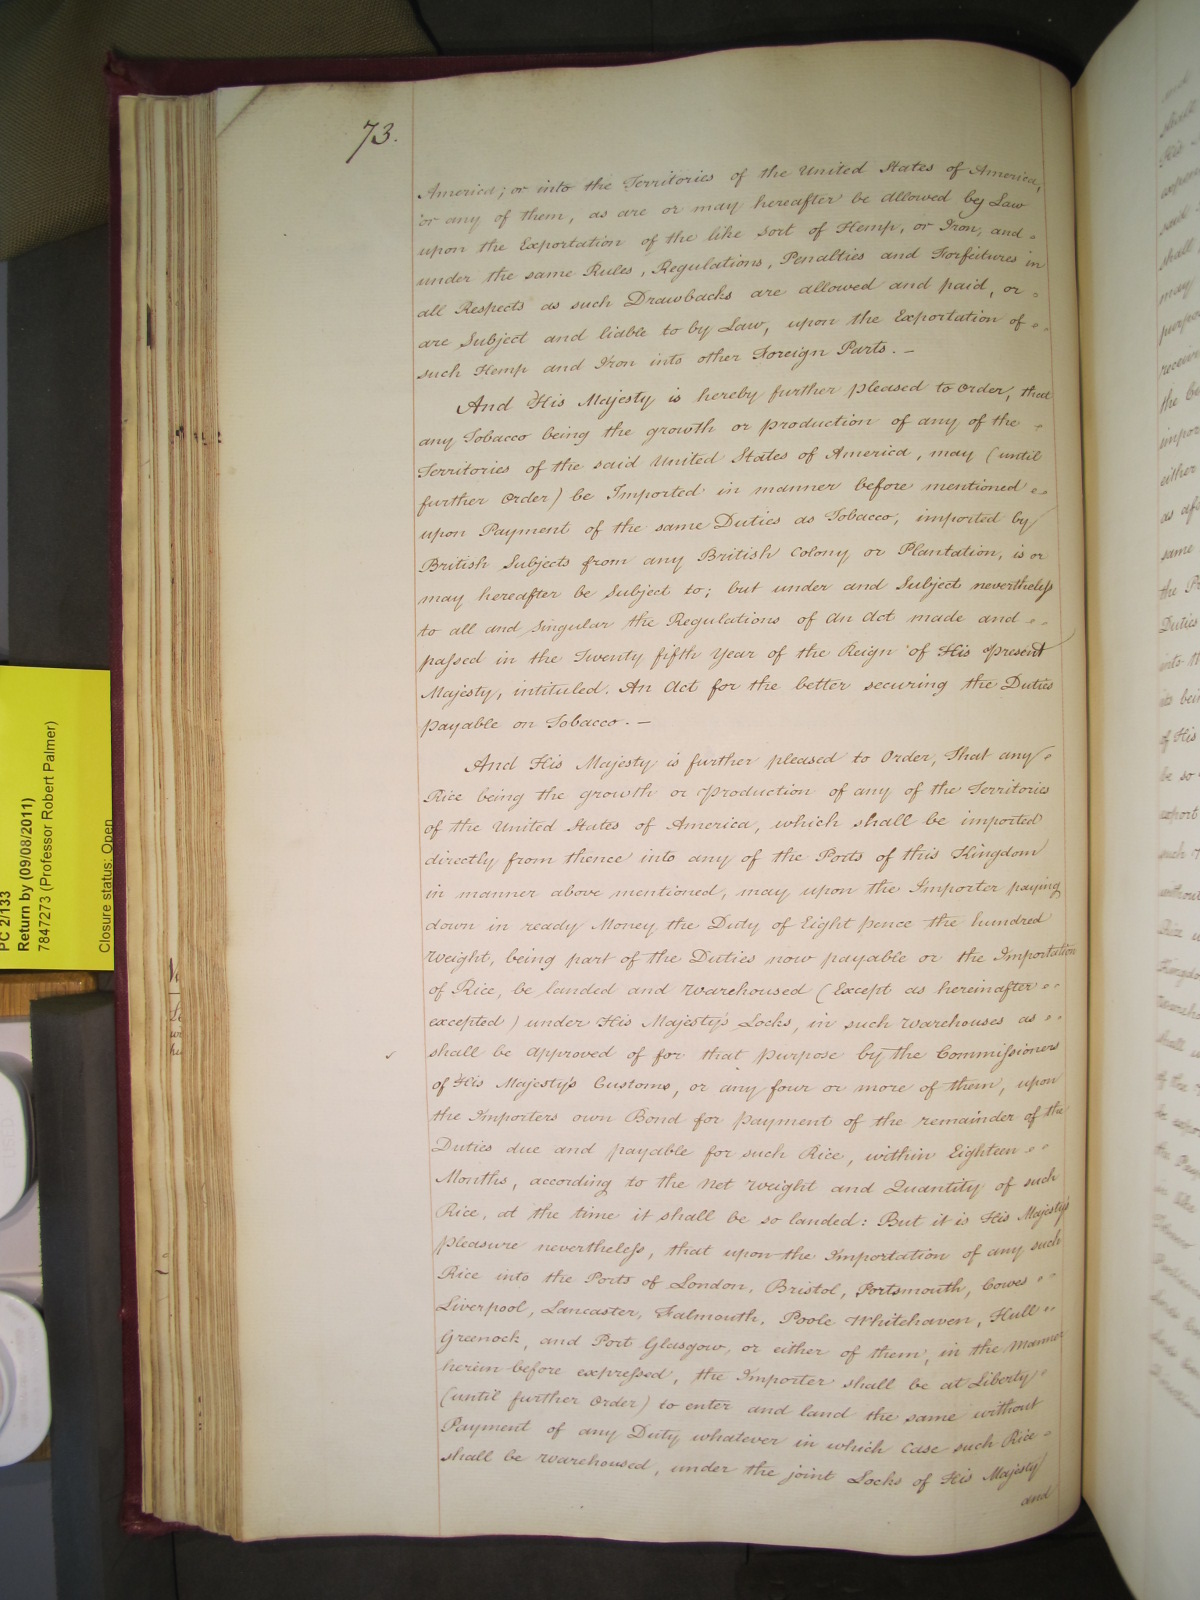 73.
America; or into the Territories of the United States of America,
or any of them, as are or may hereafter be allowed by Law
upon the Exportation of the like sort of Hemp, or Iron, and
under the same Rules, Regulations, Penalties and Forfeitures in
all Respects as such Drawbacks are allowed and paid, or
are Subject and liable to by Law, upon the Exportation of
such Hemp and Iron into other Foreign Parts. —
And His Majesty is hereby further pleased to Order, that
any Tobacco being the growth or production of any of the
Territories of the said United States of America, may (until
further Order) be Imported in manner before mentioned
upon Payment of the same Duties as Tobacco, imported by
British Subjects from any British Colony or Plantation, is or
may hereafter be Subject to; but under and Subject nevertheless
to all and singular the Regulations of an Act made and
passed in the Twenty fifth Year of the Reign of His present
Majesty, intituled. An Act for the better securing the Duties
payable on Tobacco. —
And His Majesty is further pleased to Order, That any
Rice being the growth or production of any of the Territories
of the United States of America, which shall be imported
directly from thence into any of the Ports of this Kingdom
in manner above mentioned, may upon the Importer paying
down in ready Money the Duty of Eight pence the hundred
Weight, being part of the Duties now payable or the Importation
of Rice, be landed and Warehoused (Except as hereinafter
excepted) under His Majesty's Locks, in such Warehouses as
shall be approved of for that purpose by the Commissioners
of His Majesty's Customs, or any four or more of them, upon
the Importers own Bond for payment of the remainder of the
Duties due and payable for such Rice, within Eighteen
Months, according to the Net Weight and Quantity of such
Rice, at the time it shall be so landed: But it is His Majesty's
pleasure nevertheless, that upon the Importation of any such
Rice into the Ports of London, Bristol, Portsmouth, Cowes
Liverpool, Lancaster, Falmouth, Poole Whitehaven, Hull
Greenock, and Port Glasgow, or either of them, in the Manner
herein before expressed, the Importer shall be at Liberty
(until further Order) to enter and land the same without
Payment of any Duty whatever in which Case such Rice
shall be warehoused, under the joint Locks of His Majesty
and
PC 2/133
Return by (09/08/2011)
7847273 (Professor Robert Palmer)
Closure status: Open